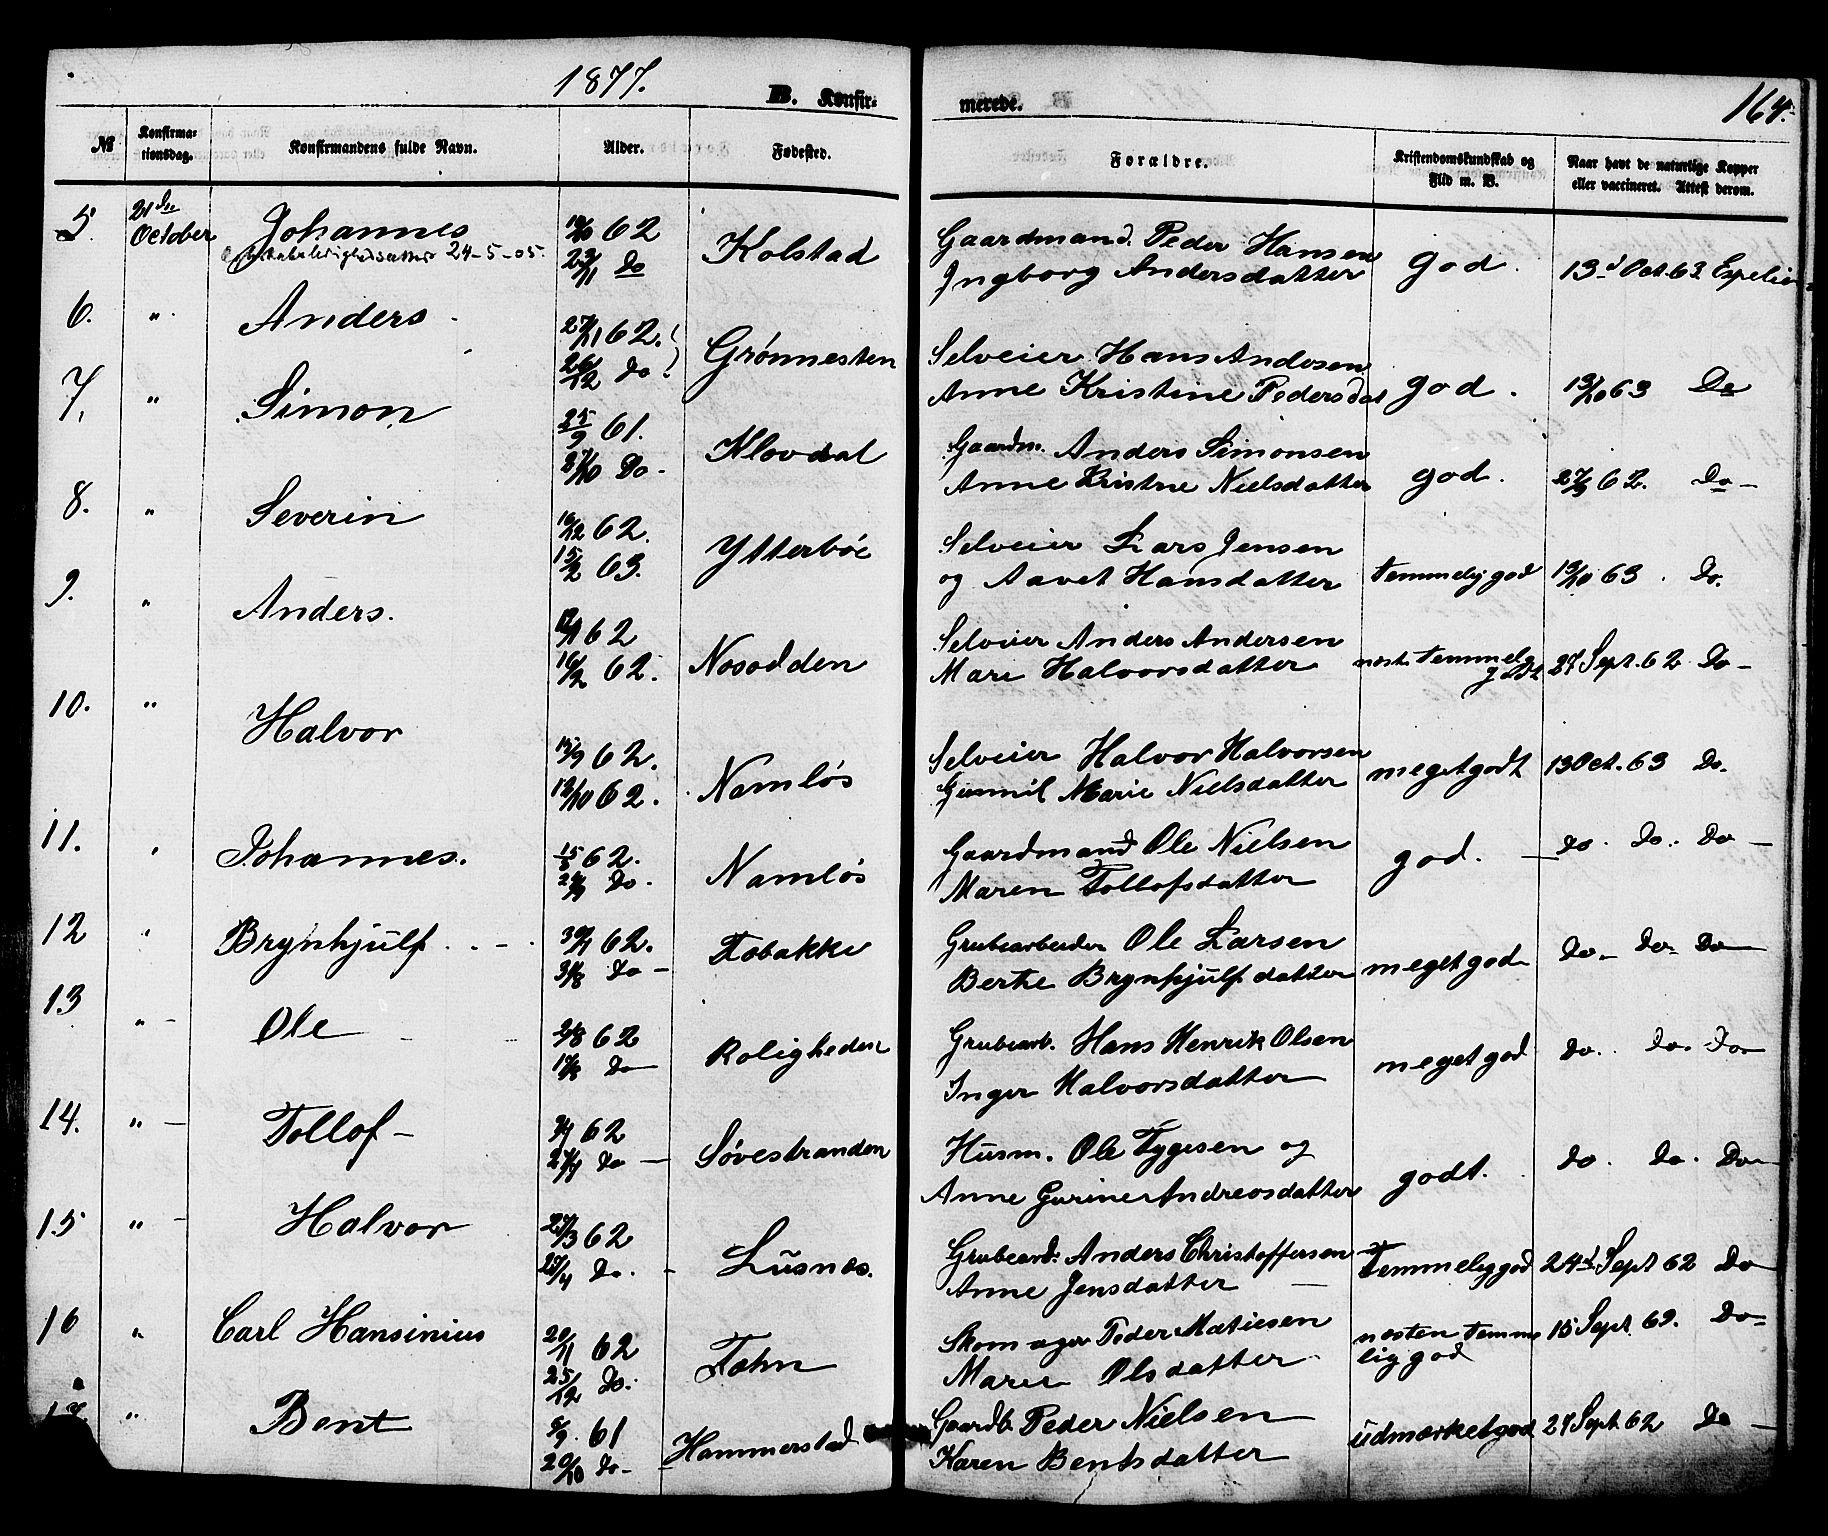 1877.
B. Konfir- merede. 164.
No Konfirma-tionsdag. Konfirmandens fulde Navn. Alder. Fødested. Forældre. Kristendomskundskab og Flid m. V. Naar havt de naturlige Kopper eller vaccineret. Attest derom.
5. 21de October Johannes 62 Kolstad Gaardmand. Peder Hansen god. 13d Oct. 63
24-5-05. Do Ingborg Andersdatter
6. " Anders 27/11 62. Grønnesten Selveier Hans Andesen god. 13/10 63 Do
26/12 Do. Anne Kristine Pedersdat
7. " Simon 25/9 61. Klovdal Gaardm. Anders Simonsen god. 27/9 62. Do-
27/10 Do- Anne Kristne Nielsdatter
8. " Severin 16/12 62. Ytterbøe Selveier Lars Jensen temmelig god 13/10 63. Do.
15/2 63. og Aavet Hansdatter
9. " Anders. 62 Nosodden Selveier Anders Andersen temmelig godt 27 Sept. 62 Do-
16/2 62. Mari Halvorsdatter
10. " Halvor 15/9 62. Namløs Selveier Halvor Halvorsen meget godt 13 Oct. 63 Do.
12/10 62. Gunnil Marie Nielsdatter
11. " Johannes. 62. Namløs Gaardmand Ole Nielsen god. do. Do. Do-
Do. Maren Tollofsdatter
12 " Brynhjulf 30/7 62. Tobakke Grubearbeider Ole Larsen meget god do- do- Do-
31/8 Do- Berthe Brynhjulfsdatter
13 " Ole 62 Roligheden Grubearb. Hans Henrik Olsen meget god do. do. Do-
Do- Inger Halvorsdatter
14. " Tollof- 62 Søvestranden Husm. Ole Tygesen og godt. do. Do. Do-
Do- Anne Gurine Andreasdatter
15 " Halvor 62 Lusnes. Grubearb. Anders Christoffersen Temmelig god 24d Sept 62 Do
Do. Anne Jensdatter
16 " Carl Hansinius 20/11 62 Tahn Skomager Peder Matiesen nesten temme 15 Sept. 63. Do-
25/12 Do. Maren Olsdatter lig god
17. " Bent 61 Hammerstad Gaardb. Peder Nielsen udmærket god 27 Sept. 62 Do-
20/10 Do- Karen Bentsdatter